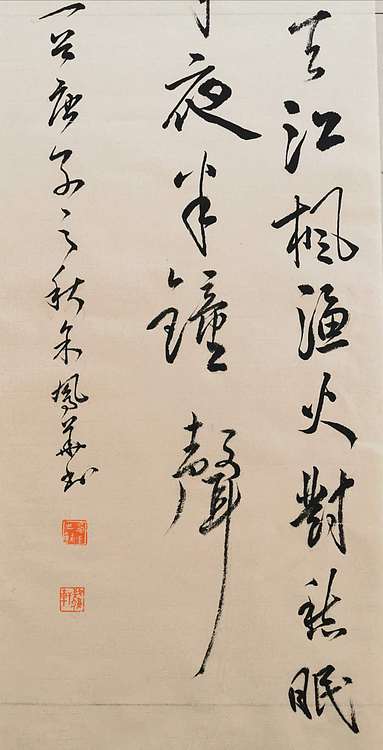 天江楓漁火對愁眠
夜半鐘聲
一首庚子之秋朱鳳華書